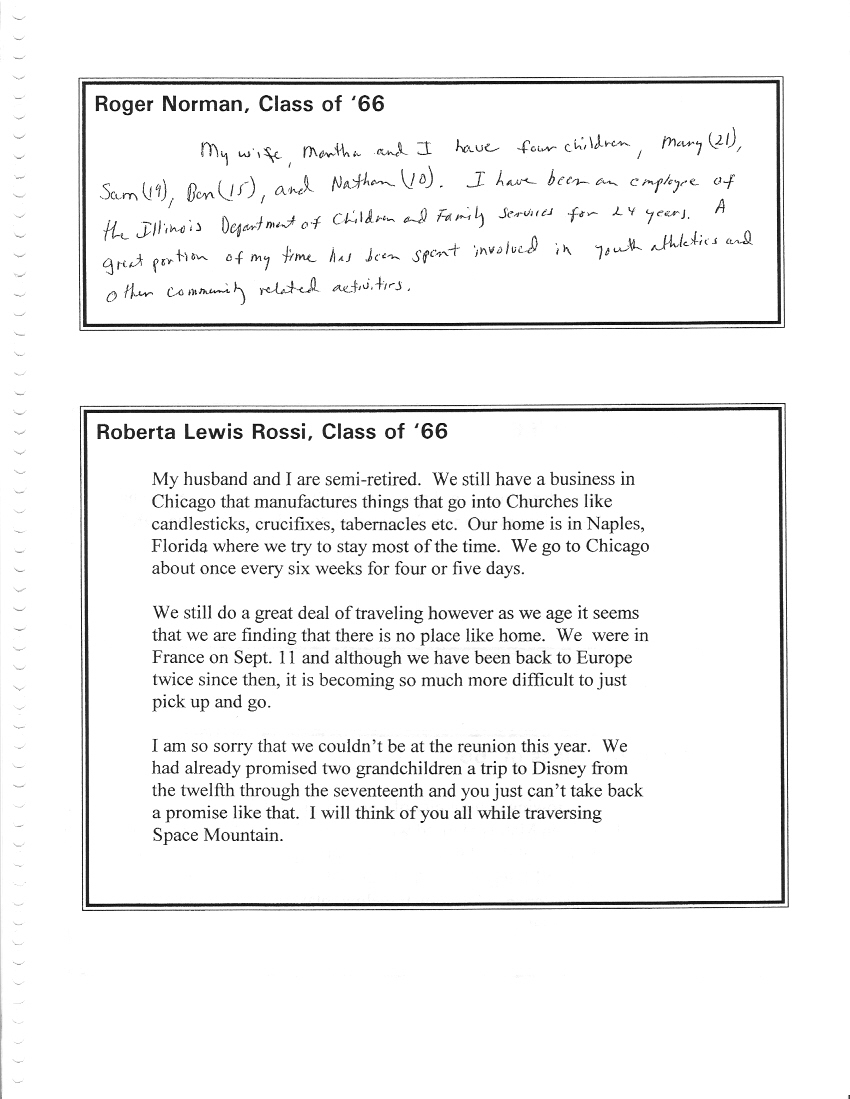 Roger Norman, Class of ‘66
My wife, Martha and I have four children, Mary (21),
Sam (19), Ben (15), and Nathan (10). I have been an employee of
the Illinois Department of Children and Family Services for 24 years. A
great portion of my time has been spent involved in youth athletics and
other community related activities.
Roberta Lewis Rossi, Class of ‘66
My husband and I are semi-retired. We still have a business in
Chicago that manufactures things that go into Churches like
candlesticks, crucifixes, tabernacles etc. Our home is in Naples,
Florida where we try to stay most of the time. We go to Chicago
about once every six weeks for four or five days.
We still do a great deal of traveling however as we age it seems
that we are finding that there is no place like home. We were in
France on Sept. 11 and although we have been back to Europe
twice since then, it is becoming so much more difficult to just
pick up and go.
I am so sorry that we couldn’t be at the reunion this year. We
had already promised two grandchildren a trip to Disney from
the twelfth through the seventeenth and you just can’t take back
a promise like that. I will think of you all while traversing
Space Mountain.